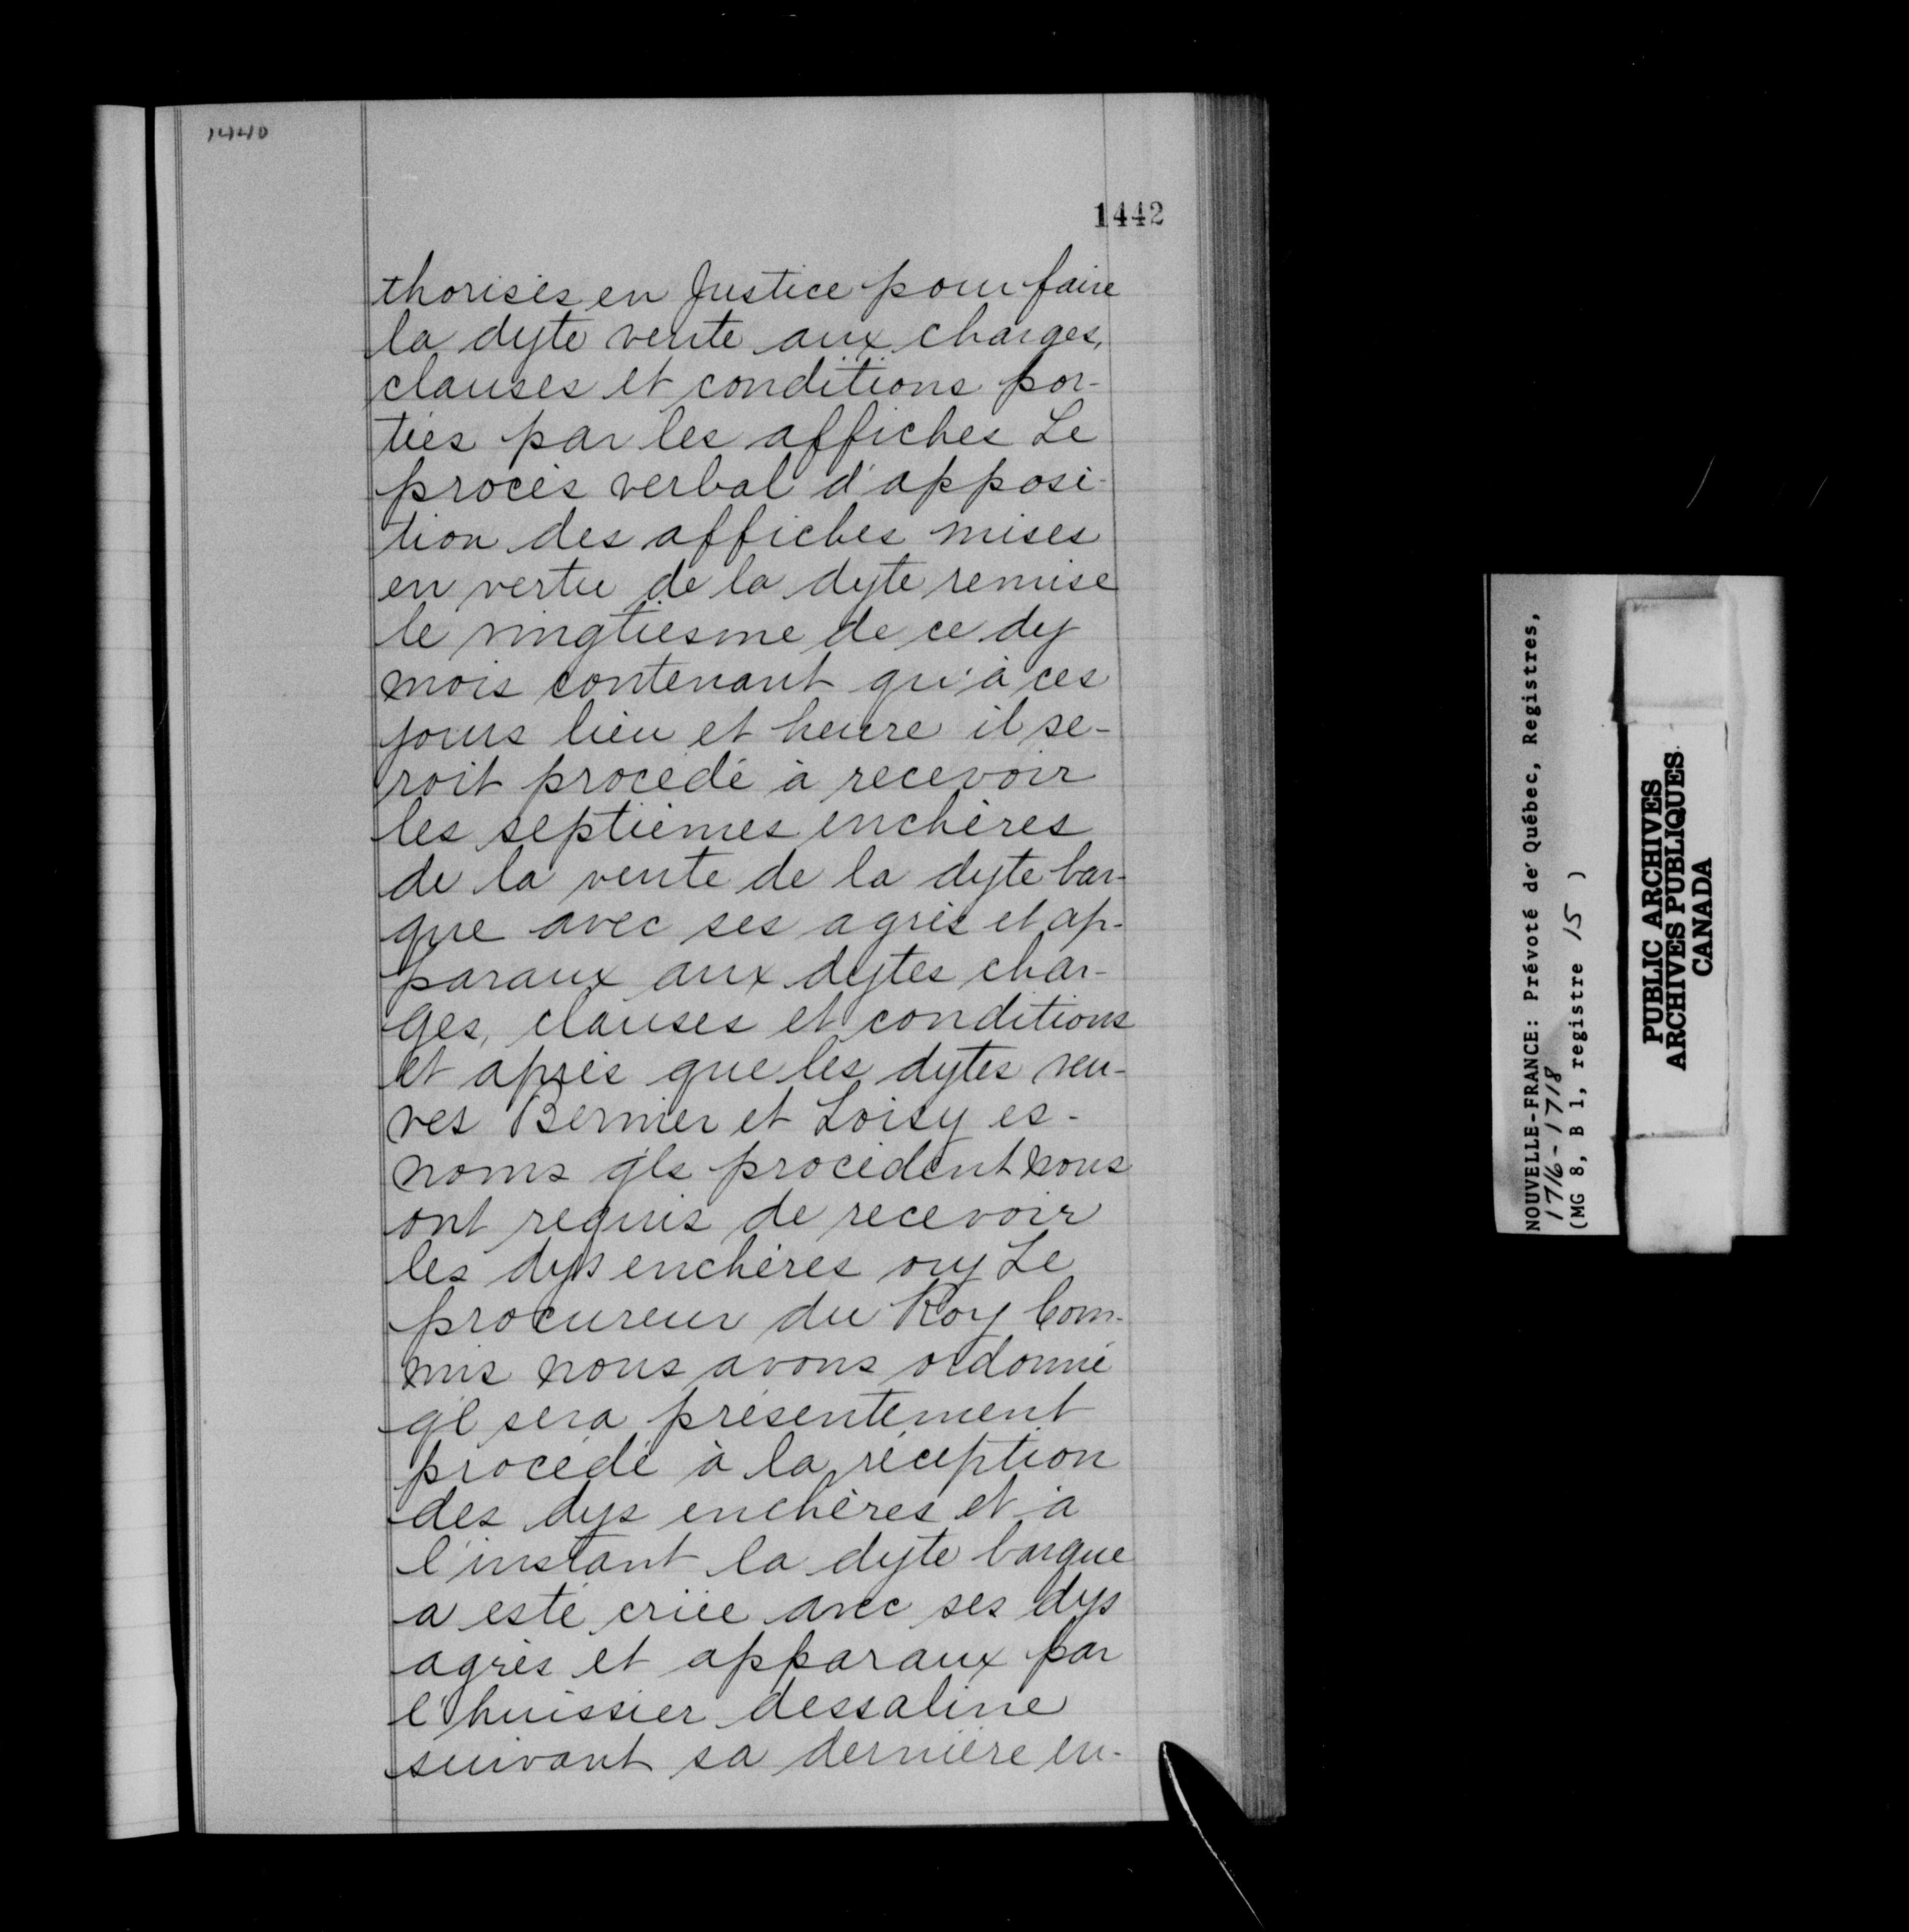 1440
1442
thorisés en Justice pour faire
la dyte vente aux charges,
clauses et conditions por-
tées par les affiches Le
procès verbal d'apposi-
tion des affiches mises
en vertu de la dyte remise
le vingtiesme de ce dy
mois contenant qu'à ces
jours lieu et heure il se-
roit procédé à recevoir
les septièmes enchères
de la vente de la dyte bar-
que avec ses agrès et ap-
paraux aux dytes char-
ges, clauses et conditions
et après que les dytes veu-
ves Bernier et Loisy es-
noms qls procèdent nous
ont requis de recevoir
les dys enchères ouy Le
procureur du Roy Com-
mis nous avons ordonné
ql sera présentement
procédé à la réception
des dys enchères et à
l'instant la dyte barque
a esté criée avec ses dys
agrès et apparaux par
l'huissier dessaline
suivant sa dernière en-
NOUVELLE-FRANCE: Prévoté de Québec, Registres,
1716-1718
(MG 8, B 1, registre 15 )
PUBLIC ARCHIVES
ARCHIVES PUBLIQUES
CANADA